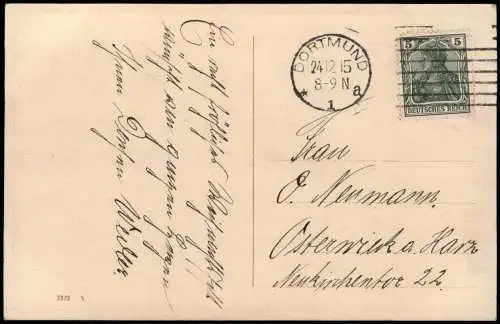 Ein recht fröhliches Weihnachtsfest
wünscht von ganzem Herzen
Ihnen
DORTMUND
24.12.15
8-9 N
* 1 a
5 5
DEUTSCHES REICH
Frau
E. Neumann.
Osterwieck a. Harz
Neukirchentor 22.